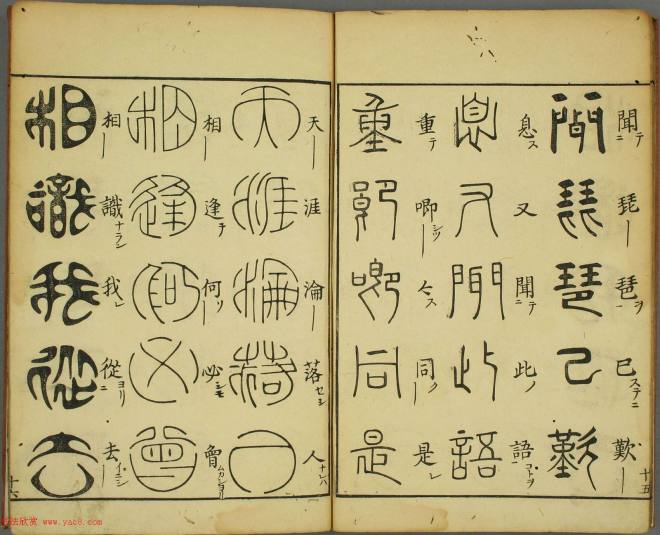 聞琵琶已歎
聞テニ 琵｜ 琶ヲ 已ステニ 歎｜
息又聞此語
息ス 又 聞テ 此ノ 語コトヲ
重唧唧同是
重テ 唧シツ｜ 々ス 同ク 是レ
十五
天涯淪落人
天｜ 涯 淪｜ 落セシ 人ナレハ
相逢何必曾
相｜ 逢ヲ 何ソ 必シモ 曾ムカシヨリ
相識我從去
相｜ 識ナラン 我レ 從ヨリニ 去イニシ
十六
书法欣赏 www.yac8.com